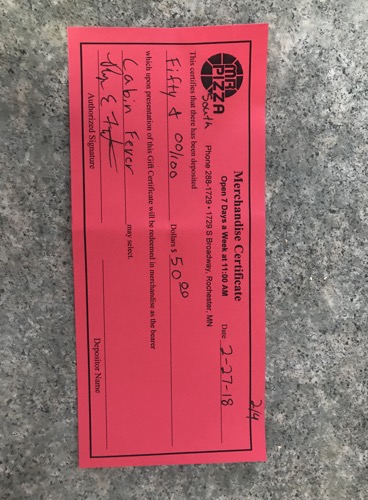 2/4
MR.
PIZZA
South
Merchandise Certificate
Open 7 Days a Week at 11:00 AM
Phone 288-1729 • 1729 S Broadway, Rochester, MN
Date 2-27-18
This certifies that there has been deposited
Fifty & 00/100 Dollars $ 50 00
which upon presentation of this Gift Certificate will be redeemed in merchandise as the bearer
Cabin Fever may select.
Authorized Signature
Depositor Name